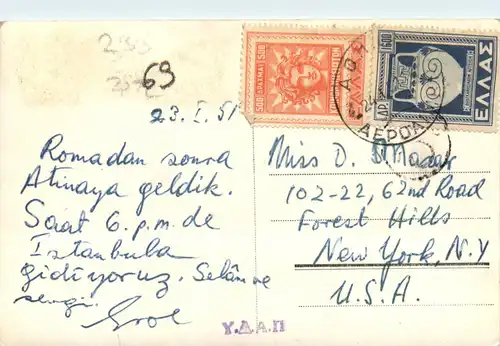 69
23. I. 51
Romadan sonra
Atinaya geldik.
Saat 6. p.m. de
Istanbula
gidiyoruz. Selâm ve
sevgi.
Erol
Miss D.
102-22, 62nd Road
Forest Hills
New York, N.Y
U.S.A.
Υ.Δ.Α.Π
500 ΔΡΑΧΜΑΙ 500
ΕΛΛΑΣ
1600
ΕΛΛΑΣ
ΑΘΗ
ΑΕΡΟΔ